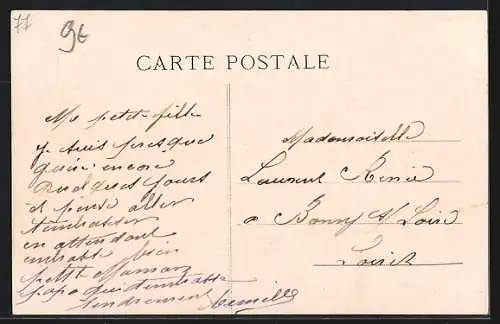 77
9t
CARTE POSTALE
Ma petite fille
je suis presque
guérie encore
quelques jours
et pense aller
t'embrasser
en attendant
embrasse bien
petite Maman
papa qui t'embrasse
tendrement Camille
Mademoiselle
Laurent Renée
a Bonny s/ Loire
Loiret